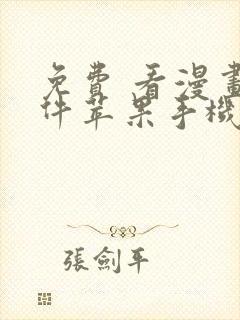 免費 看漫畫
件苹果手機
張劍平